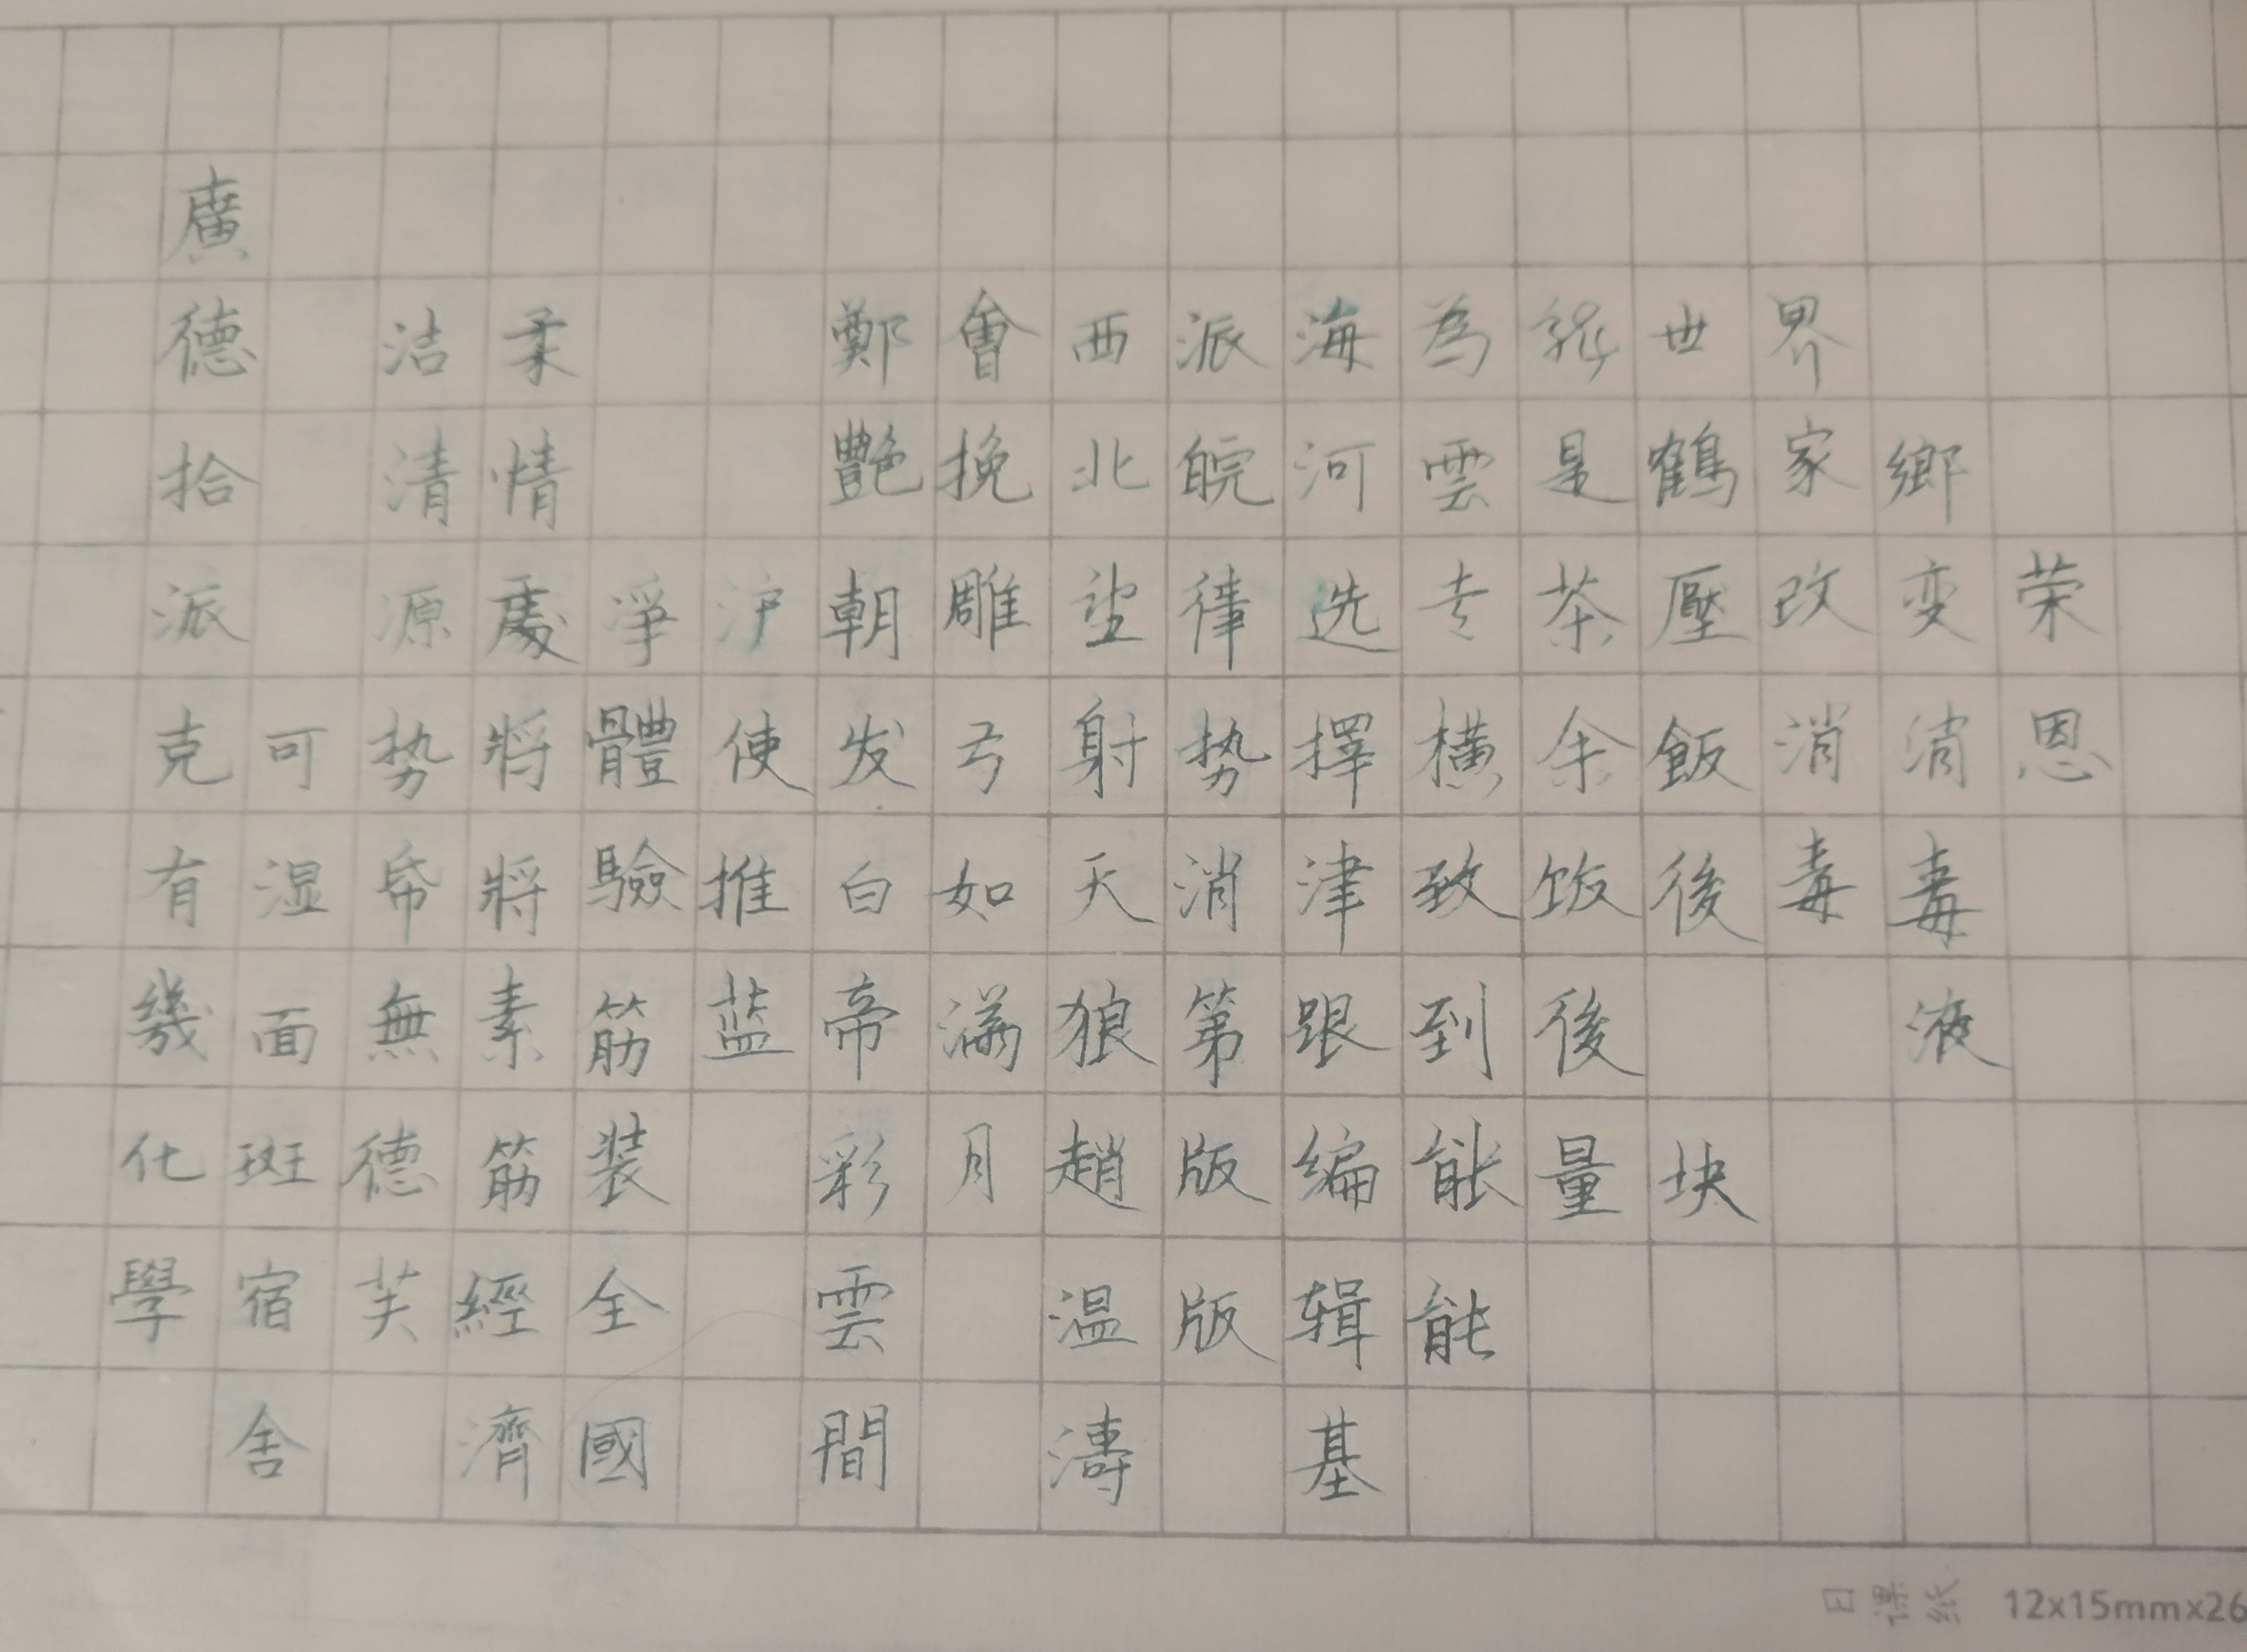 廣德拾派克有幾化學
可湿面斑宿舍
洁清源势帋無德芙
柔情處將將素筋經濟
淨體驗筋装全國
沪使推蓝
鄭艷朝发白帝彩雲間
會挽雕弓如满月
西北望射天狼趙温濤
派皖律势消第版版
海河选擇津跟编辑基
為雲专横致到能能
是茶余饭後量
世鶴壓飯後块
界家改消毒
鄉变消毒液
荣恩
日课纸 12x15mmx26